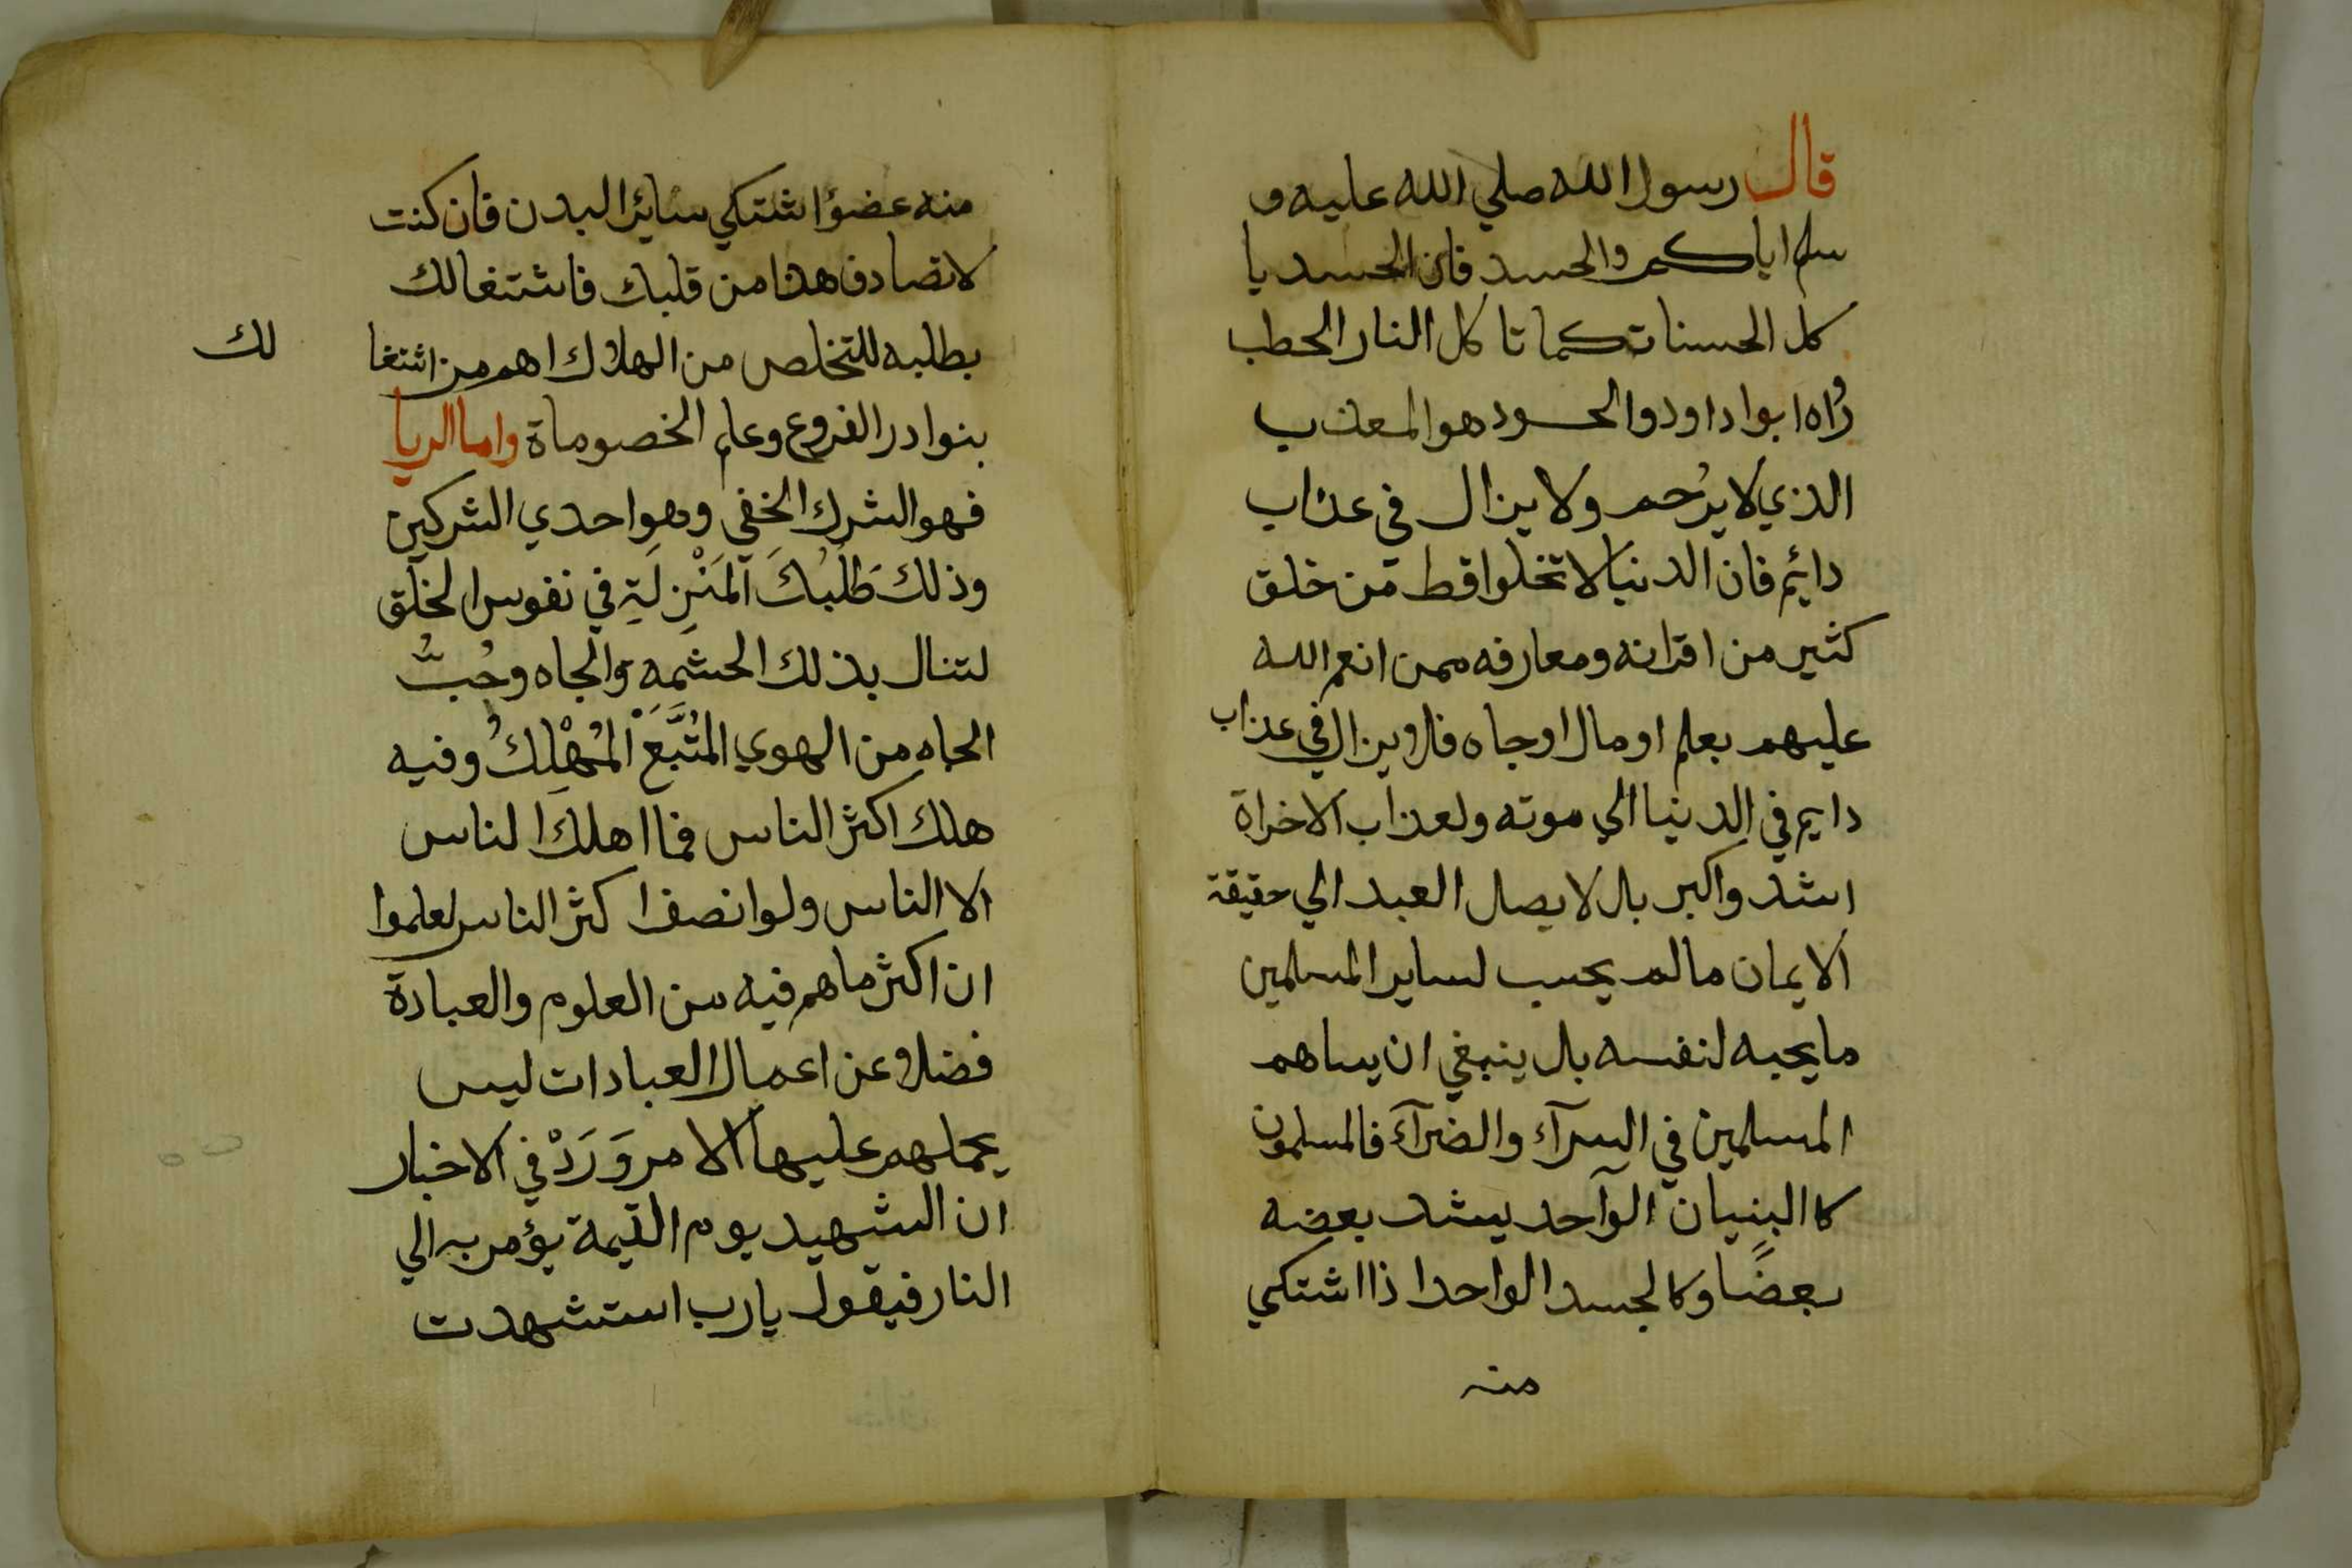 قال رسول الله صلي الله عليه و
سلم اياكم والحسد فان الحسد يا
كل الحسنات كما تا كل النار الحطب
رواه ابوا داود والحسود هو المعذب
الذي لا يرُحم ولا يزال في عذاب
دائيم فان الدنيا لا تخلوا قط من خلق
كثير من اقرانه ومعارفه ممن انعم الله
عليهم بعلم او مال او جاه فلا يزال في عذاب
دايم في الدنيا الي موته ولعذاب الاخراة
اشد واكبر بل لا يصل العبد الي حقيقة
الايمان ما لم يحب لساير المسلمين
ما يحبه لنفسه بل ينبغي ان يساهم
المسلمين في السرآء والضرآء فالمسلمون
كا البنيان الوآحد يشد بعضه
بعضًا وكالجسد الواحد اذا اشتكي
منه
منه عضؤا شتكي سايئر البدن فان كنت
لا تصادف هذا من قلبك فاشتغالك
بطلبه للتخلص من الهلاك اهم من اشتغا
لك
بنوادر الفروع وعلم الخصوماة واما الريا
فهو الشرك الخفي وهو احدي الشركين
وذلك طَلَبُكَ المَنْزِلَةِ في نفوس الخلق
لتنال بذلك الحشمه والجاه وحُبُّ
الجاه من الهوي المُتَّبَع المُهْلِكُ وفيه
هلك اكثر الناس فما اهلك الناس
الا الناس ولو انصف اكثر الناس لعلموا
ان اكثر ما هم فيه من العلوم والعبادة
فضلا عن اعمال العبادات ليس
يحملهم عليها الا مر وَرَدْ في الاخبار
ان الشهيد يوم القيمة يؤمر به الي
النار فيقول يا رب استشهدت